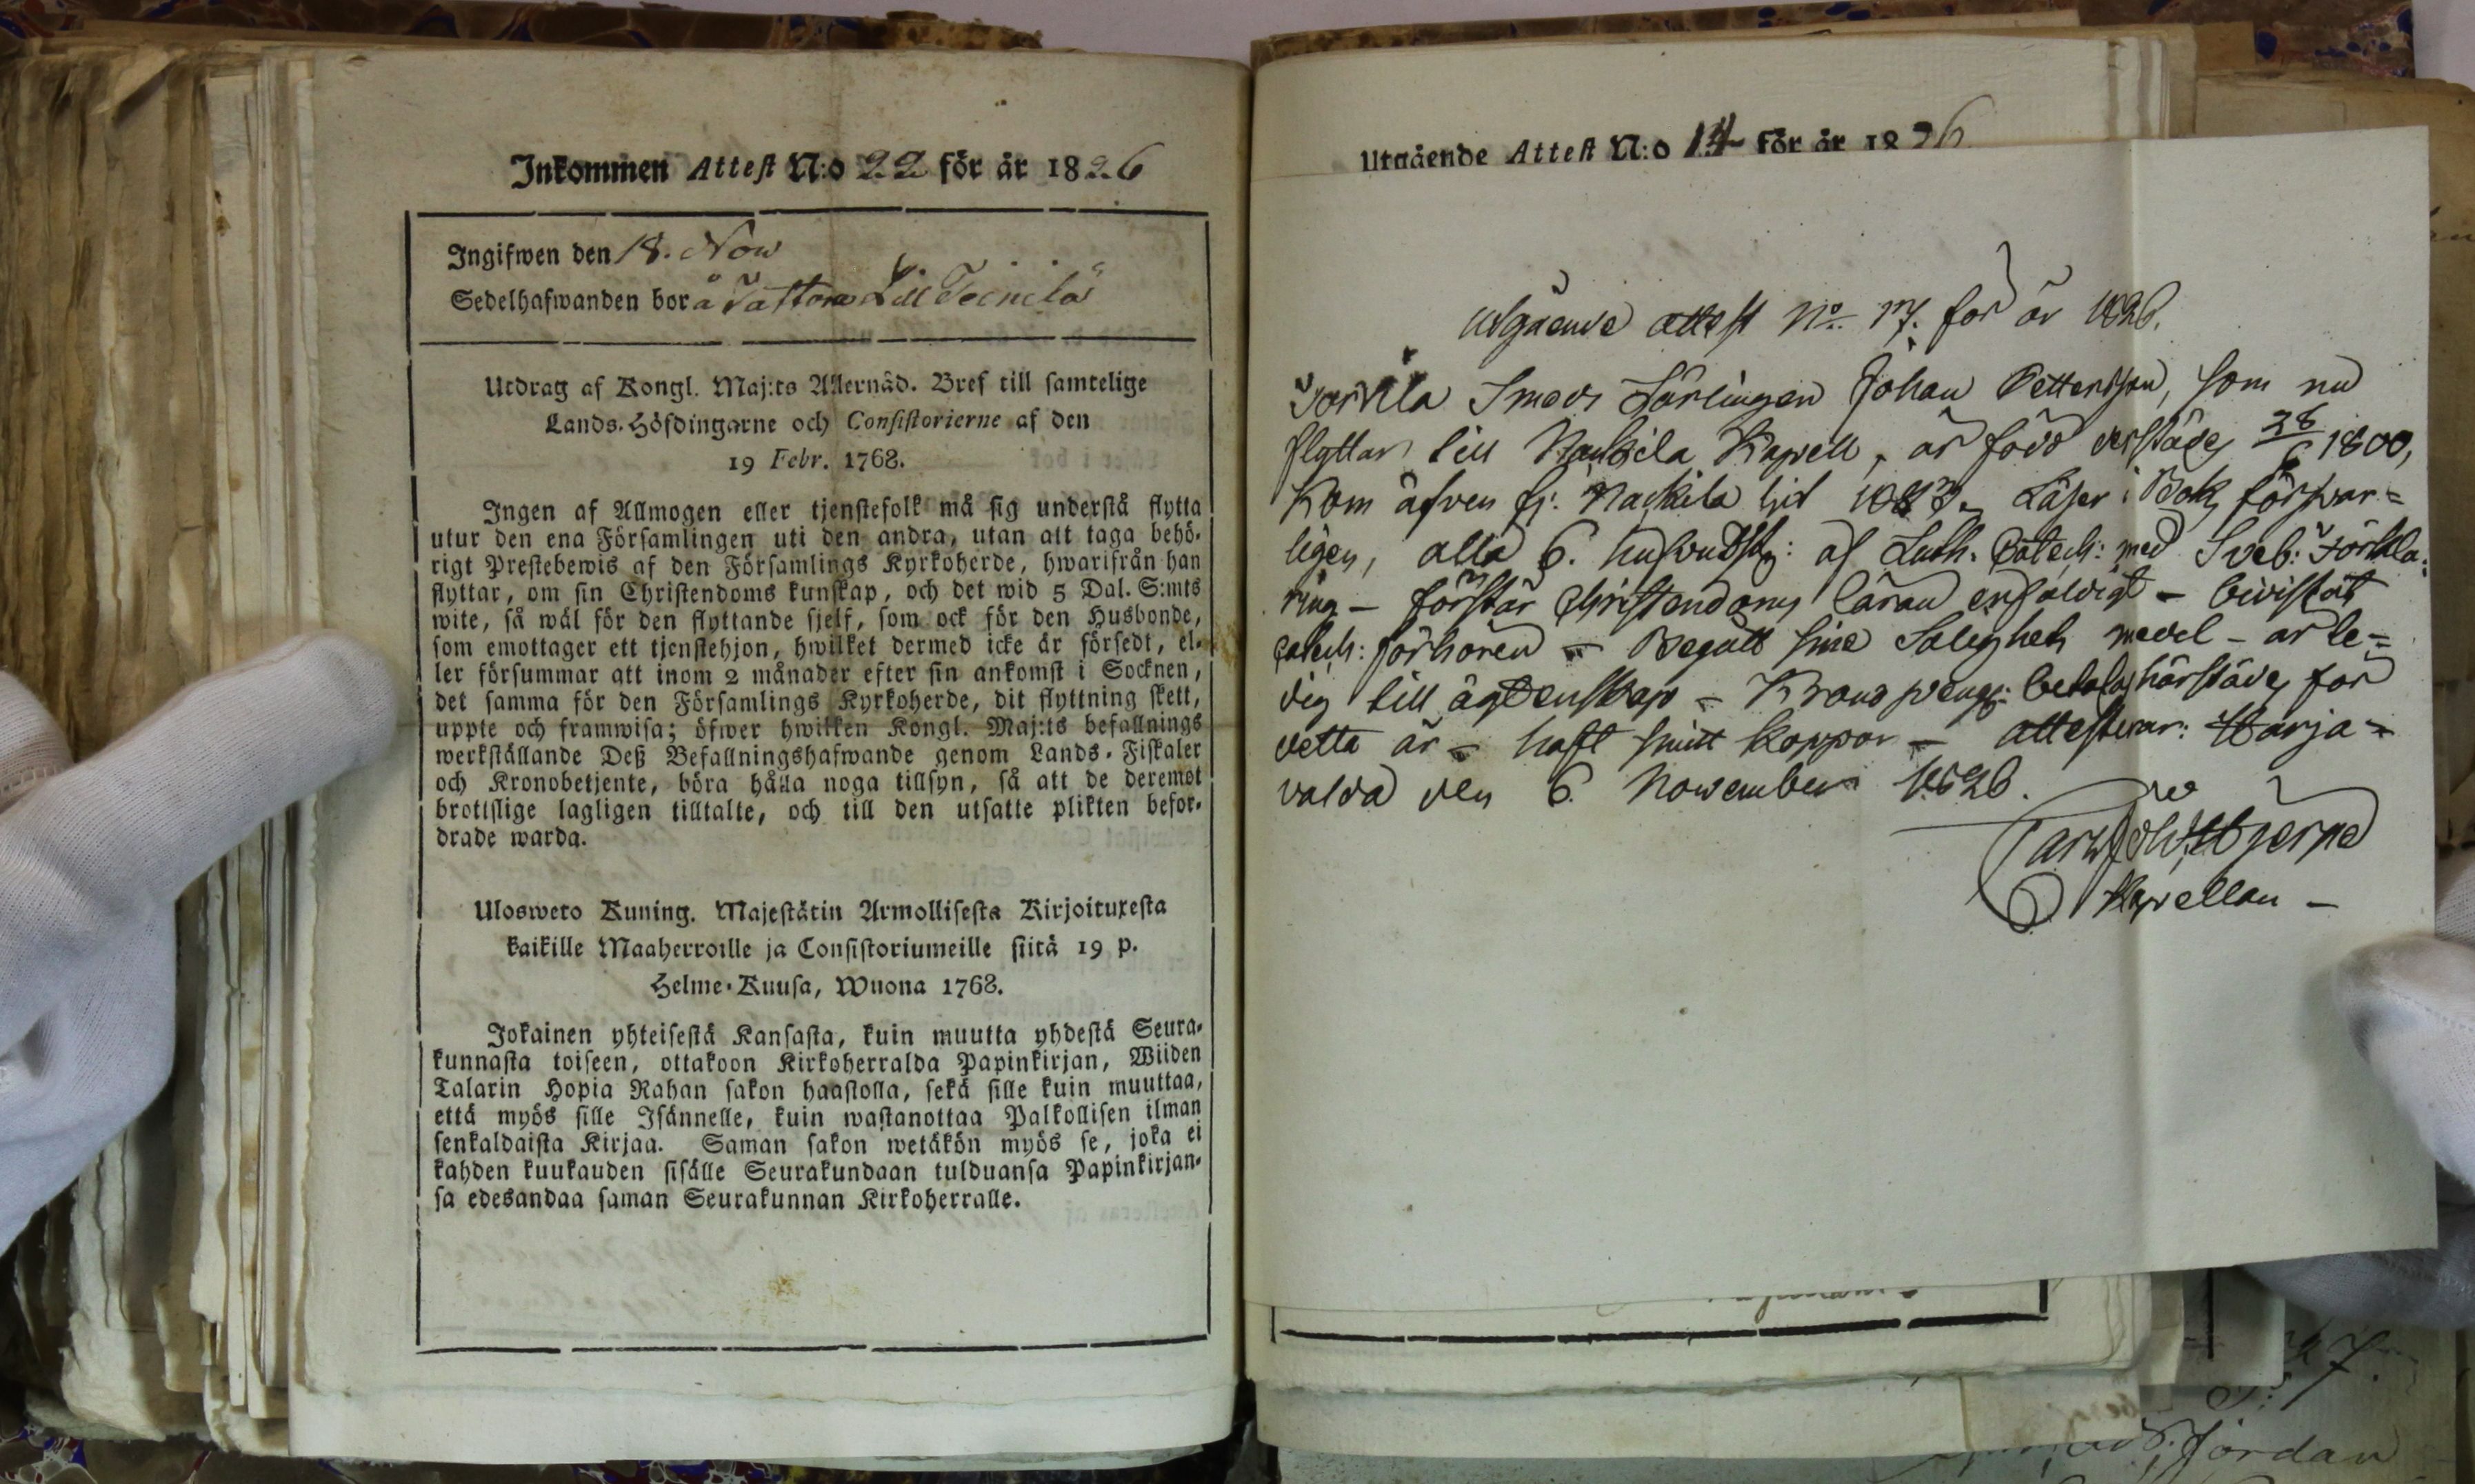 Inkommen Attest N:o 22 för år 1826
Ingifwen den 18. Now
Sedelhafwanden bor å Till
Utdrag af Kongl. Maj:ts Allernåd. Bref till samtelige
Lands-Höfdingarne och Consistorierne af den
19 Febr. 1768.
Ingen af Allmogen eller tjenstefolk må sig understå flytta
utur den ena Församlingen uti den andra, utan att taga behö-
rigt Prestebewis af den Församlings Kyrkoherde, hwarifrån han
flyttar, om sin Christendoms kunskap, och det wid 5 Dal. S:mts
wite, så wäl för den flyttande sjelf, som ock för den Husbonde,
som emottager ett tjenstehjon, hwilket dermed icke är försedt, el-
ler försummar att inom 2 månader efter sin ankomst i Socknen,
det samma för den Församlings Kyrkoherde, dit flyttning skett,
uppte och framwisa; öfwer hwilken Kongl. Maj:ts befallnings
werkställande Deß Befallningshafwande genom Lands-Fiskaler
och Kronobetjente, böra hålla noga tillsyn, så att de deremot
brottslige lagligen tilltalte, och till den utsatte plikten befor-
drade warda.
Ulosweto Kuning. Majestätin Armollisesta Kirjoituxesta
kaikille Maaherroille ja Consistoriumeille siitä 19 p.
Helme-Kuusa, Wuona 1768.
Jokainen yhteisestä Kansasta, kuin muutta yhdestä Seura-
kunnasta toiseen, ottakoon Kirkoherralda Papinkirjan, Wiiden
Talarin Hopia Rahan sakon haastolla, sekä sille kuin muuttaa,
että myös sille Isännelle, kuin wastanottaa Palkollisen ilman
senkaldaista Kirjaa. Saman sakon wetäkön myös se, joka ei
kahden kuukauden sisälle Seurakundaan tulduansa Papinkirjan-
sa edesandaa saman Seurakunnan Kirkoherralle.
Utgående Attest N:o 14 för år 1826
Utgående attest No. 17. för år 1826.
Smeds Lärlingen Johan Pettersson, som nu
flyttar till Nackila Kapell, är född derstädes 28/6 1800,
Kom äfven fr: Nackila hit Läser i Bok förswar-
ligen, alla 6. hufvudst: af Luth. Catech: med Sveb: Förkla-
ring – förstår Christendoms läran enfaldigt – bivistat
catech: förhören – Begått sine Salighets medel – är le-
dig till ägtenskap – Krono peng: betalas härstädes för
detta år – haft smitt koppor – attesterar: Harja-
valda den 6. November 1826.
Kapellan –